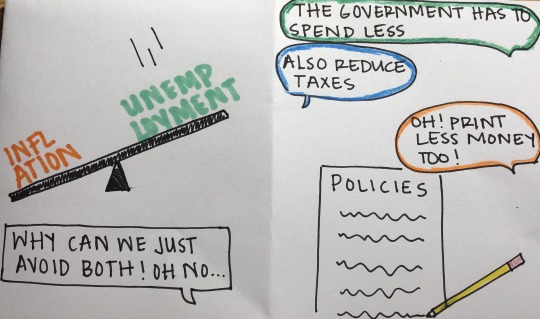 UNEMP
LOYMENT
INFL
ATION
WHY CAN WE JUST
AVOID BOTH! OH NO...
THE GOVERNMENT HAS TO
SPEND LESS
ALSO REDUCE
TAXES
OH! PRINT
LESS MONEY
TOO!
POLICIES